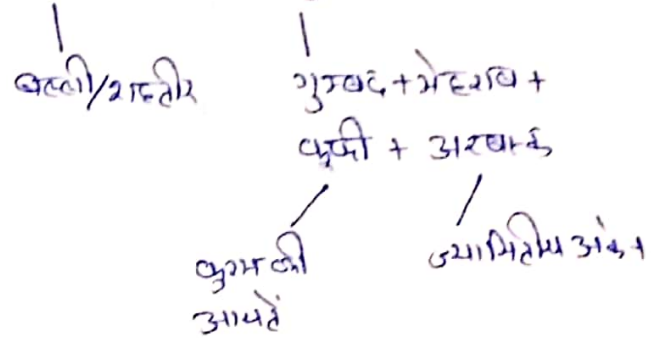 बल्ली/शहतीर
गुम्बद + मेहराब +
कूफी + अरबस्क
कुरान की
आयतें
ज्यामितीय अंकन